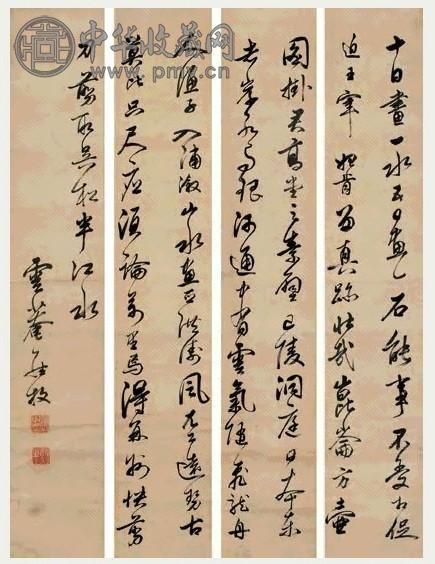 十日畫一水五日畫一石能事不受相促
迫王宰始肯留真跡壯哉崑崙方壺
圖掛君高堂之素壁巴陵洞庭日本東
赤岸水與銀河通中有雲氣隨飛龍舟
人漁子入浦漵山木盡亞洪濤風尤工遠勢古
莫比咫尺應須論萬里焉得并州快剪
刀剪取吳松半江水
雲
中华收藏网